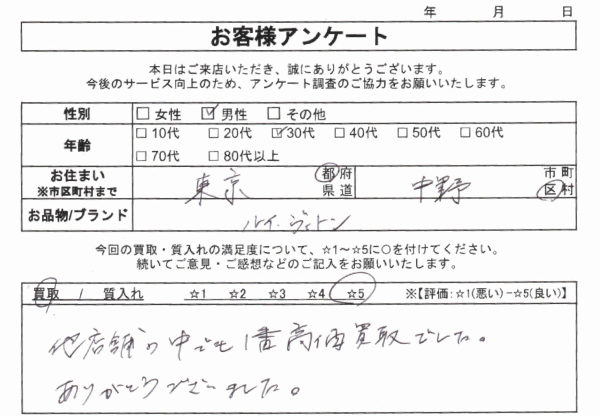 年 月 日
お客様アンケート
本日はご来店いただき、誠にありがとうございます。
今後のサービス向上のため、アンケート調査のご協力をお願いいたします。
性別 □ 女性 ☑ 男性 □ その他
年齢 □ 10代 □ 20代 ☑ 30代 □ 40代 □ 50代 □ 60代
□ 70代 □ 80代以上
お住まい ※市区町村まで 東京 都府県道 中野 市町区村
お品物/ブランド ルイ・ヴィトン
今回の買取・質入れの満足度について、☆1～☆5に○を付けてください。
続いてご意見・ご感想などのご記入をお願いいたします。
買取 / 質入れ ☆1 ☆2 ☆3 ☆4 ☆5 ※【評価:☆1(悪い)－☆5(良い)】
他店舗の中でも1番高価買取でした。
ありがとうございました。